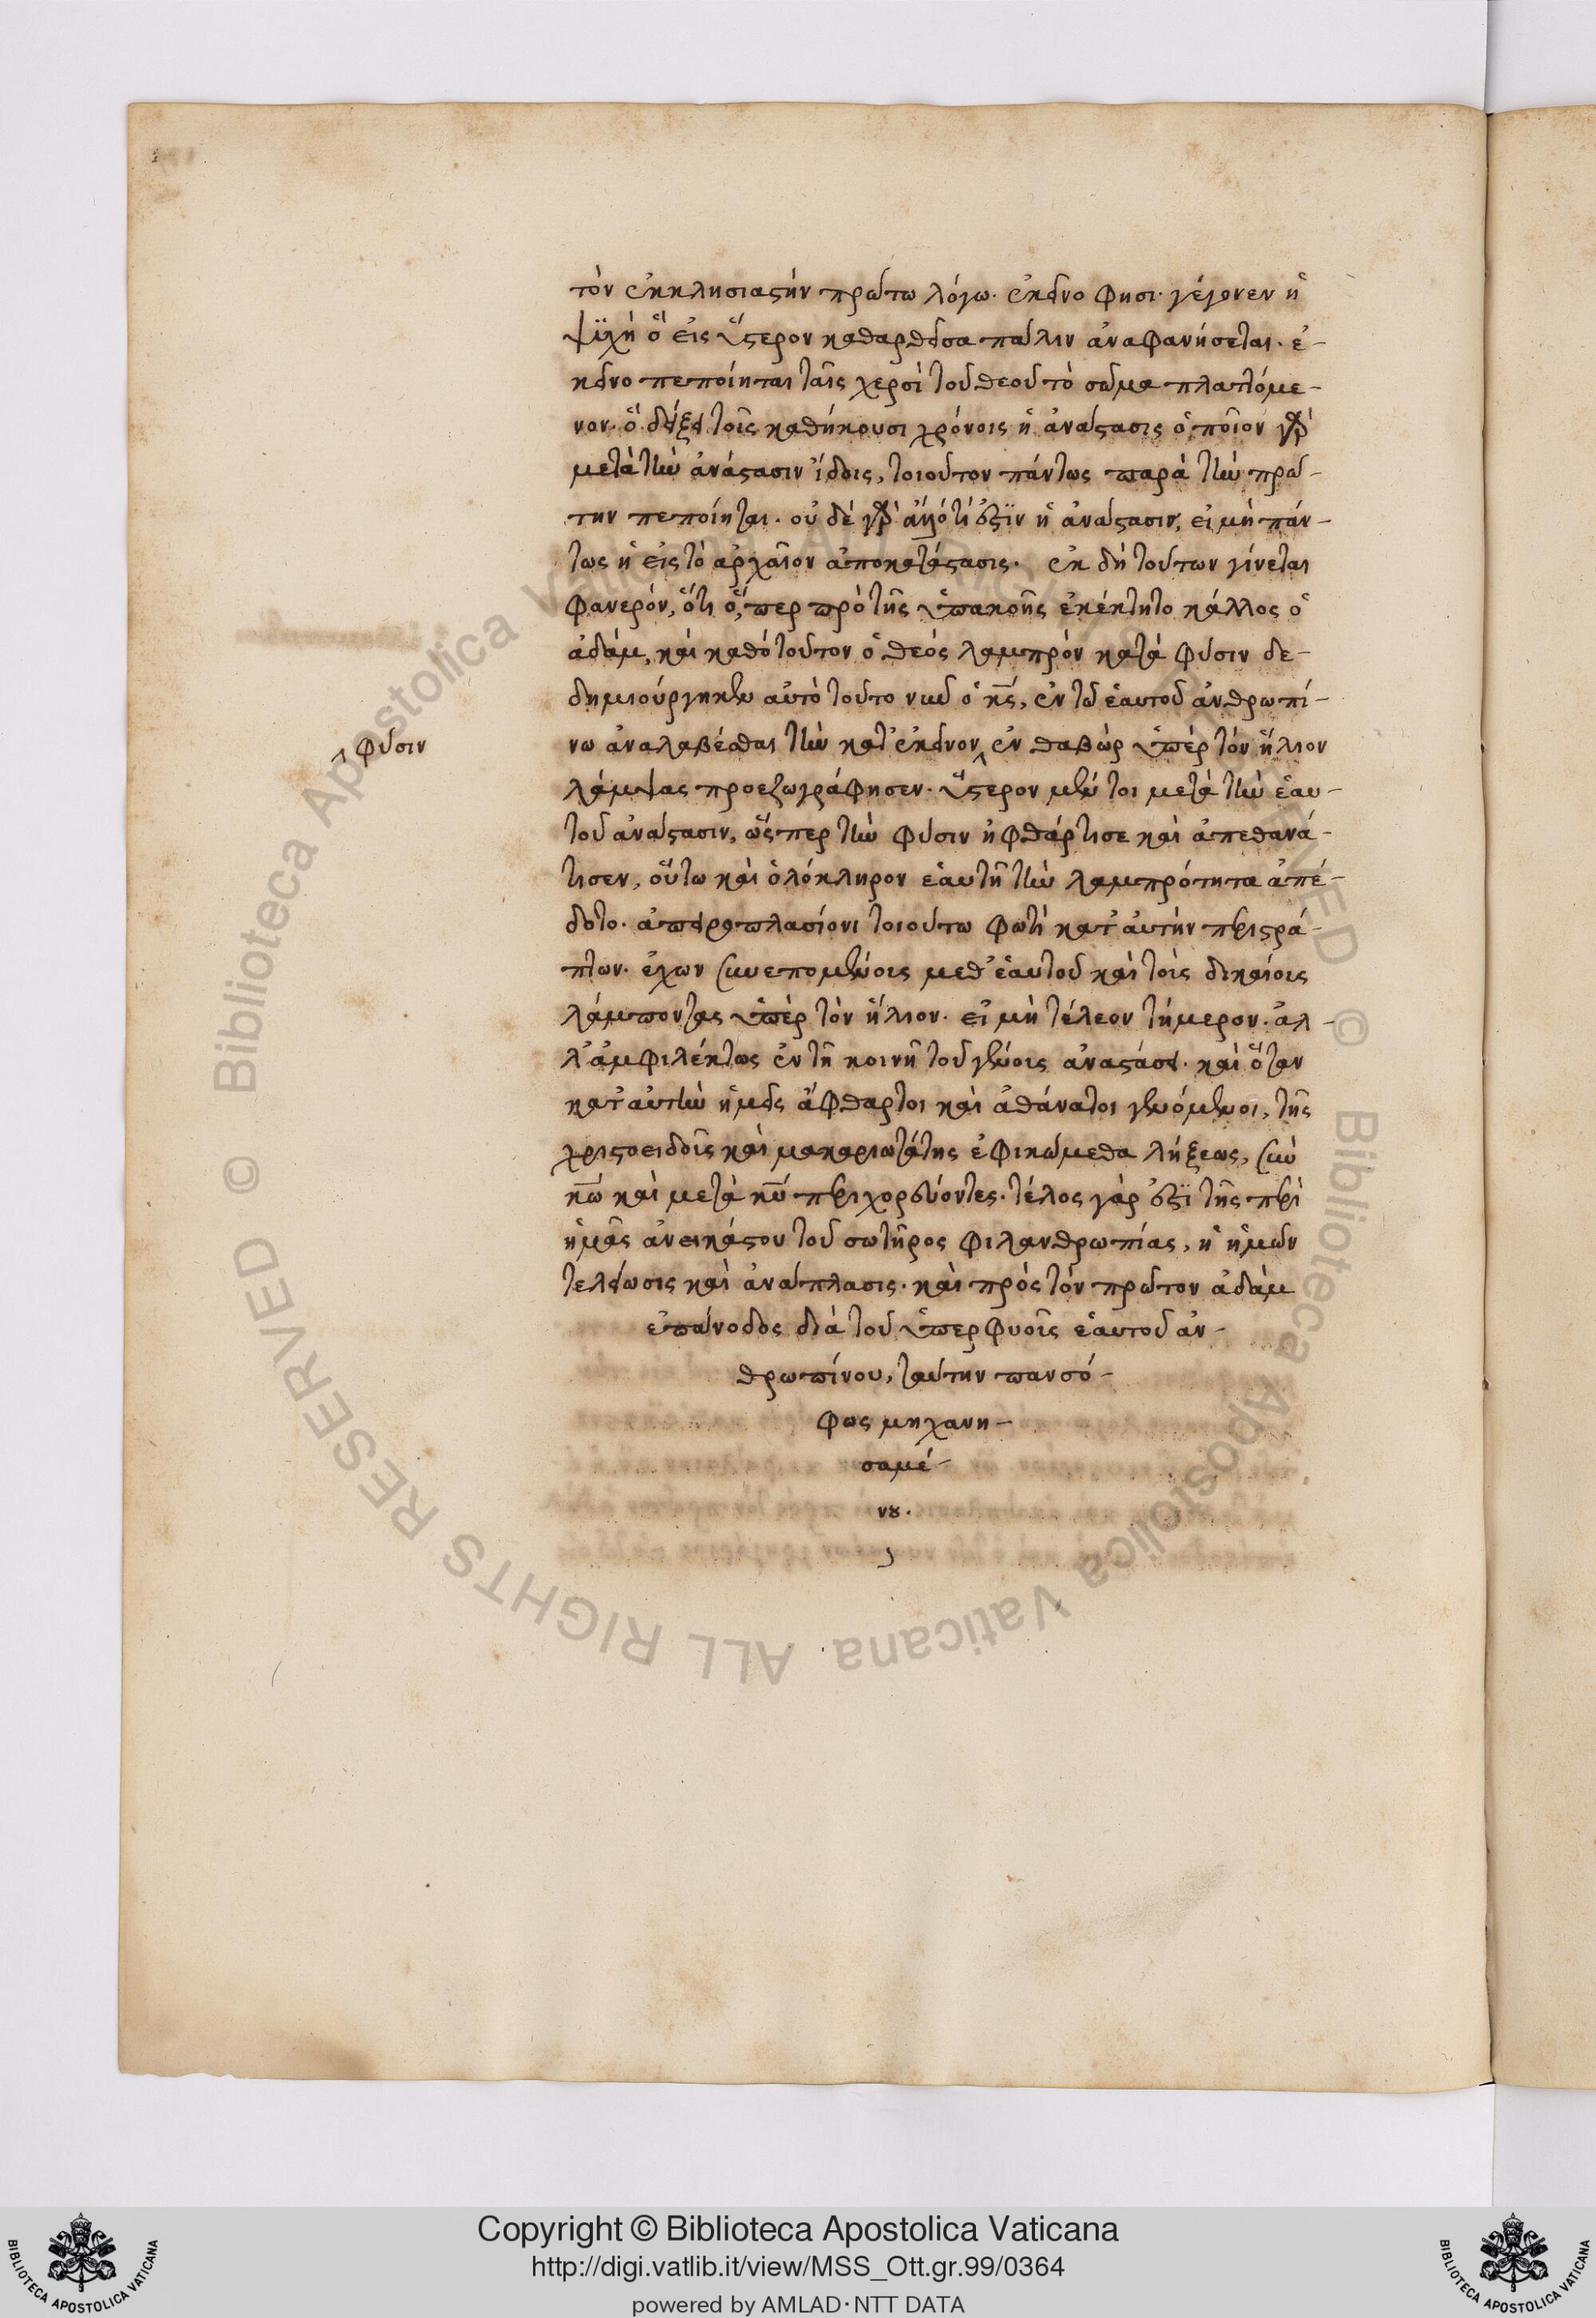 τὸν ἐκκλησιαστὴν πρώτω λόγω. ἐκεῖνο φησι. γέγονεν ἡ
ψυχὴ ὃ εἰς ὕστερον καθαρθεῖσα πάλιν ἀναφανήσεται. ἐ-
κεῖνο πεποίηται ταῖς χερσὶ τοῦ θεοῦ τὸ σῶμα πλαττόμε-
νον. ὃ δείξει τοῖς καθήκουσι χρόνοις ἡ ἀνάστασις ὁποῖον γὰρ
μετὰ τὴν ἀνάστασιν ἴδοις, τοιοῦτον πάντως παρὰ τὴν πρώ-
την πεποίηται. οὐδὲ γὰρ ἄλλό τί ἐστϊν ἡ ἀνάστασιν, εἰ μὴ πάν-
τως ἡ εἰς τὸ ἀρχαῖον ἀποκατάστασις. ἐκ δὴ τούτων γίνεται
φανερόν, ὅτι ὅ,περ πρὸ τῆς ὑπακοῆς ἐκέκτητο κάλλος ὁ
ἀδάμ, καὶ καθὸ τοῦτον ὁ θεός λαμπρὸν κατὰ φύσιν δε-
δημιούργηκεν αὐτὸ τοῦτο νῦν ὁ κς, ἐν τῶ ἑαυτοῦ ἀνθρωπί-
νω ἀναλαβέσθαι τὴν κατ' ἐκεῖνον ἐν θαβὼρ ὑπὲρ τὸν ἥλιον
φύσιν
λάμψας προεζωγράφησεν. ὕστερον μέν τοι μετὰ τὴν ἑαυ-
τοῦ ἀνάστασιν, ὥσπερ τὴν φύσιν ἠφθάρτισε καὶ ἀπεθανά-
τισεν, οὕτω καὶ ὁλόκληρον ἑαυτῆ τὴν λαμπρότητα ἀπέ-
δοτο. ἀπειροπλασίονι τοιούτω φωτὶ κατ' αὐτὴν περιστρά-
πτων. ἔχων συνεπομένοις μεθ' ἑαυτοῦ καὶ τοὶς δικαίοις
λάμποντας ὑπὲρ τὸν ἥλιον. εἰ μὴ τέλεον τήμερον. ἀλ-
λ' ἀμφιλέκτως ἐν τῆ κοινῆ τοῦ γένοις ἀναστάσει. καὶ ὅταν
κατ' αὐτὴν ἡμεῖς ἄφθαρτοι καὶ ἀθάνατοι γενόμενοι, τῆς
χριστοειδοῖς καὶ μακαριωτάτης ἐφικώμεθα λήξεως, σὺν
κω καὶ μετὰ κυ περιχορεύοντες. τέλος γάρ ἐστϊ τῆς περὶ
ἡμᾶς ἀνεικάστου τοῦ σωτῆρος φιλανθρωπίας, ἡ ἡμῶν
τελείωσις καὶ ἀνάπλασις. καὶ πρὸς τὸν πρῶτον ἀδὰμ
ἐπάνοδος διὰ τοῦ ὑπερφυοῖς ἑαυτοῦ ἀν-
θρωπίνου, ταύτην πανσό-
φως μηχανη-
σαμέ-
νου.
Copyright © Biblioteca Apostolica Vaticana
http://digi.vatlib.it/view/MSS_Ott.gr.99/0364
powered by AMLAD·NTT DATA
BIBLIOTECA APOSTOLICA VATICANA
BIBLIOTECA APOSTOLICA VATICANA
© Biblioteca Apostolica Vaticana ALL RIGHTS RESERVED